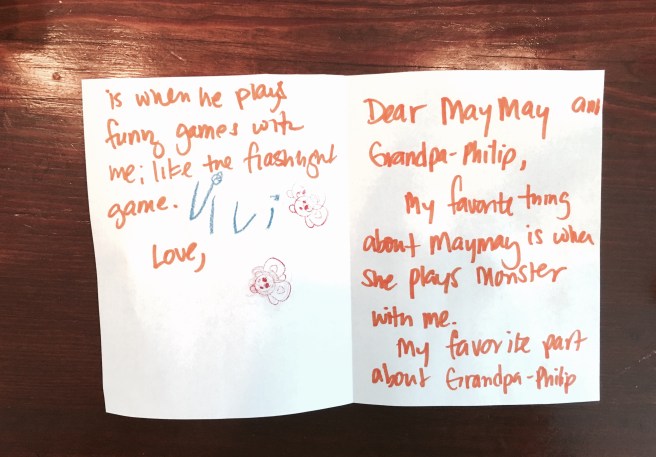 Dear MayMay and
Grandpa-Philip,
My favorite thing
about Maymay is when
she plays Monster
with me.
My favorite part
about Grandpa-Philip
is when he plays
funny games with
me; like the flashlight
game.
Vivi
Love,